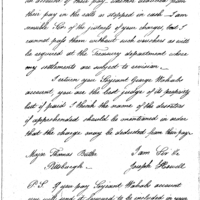 their pay in the sale or stopped on each. I am
sensible Sir of the justness of your charges, but I
cannot pay them without such vouchers as will
be required at the Treasury department where
my settlements are subject to revision
I return you Serjeant George Wahabs
account, you are the best judge of its property
but if paid I think the name of the deserters
if apprehended should be mentioned in order
that the charge may be deducted from their pay.
Major Thomas Butler
I am Sir &c
Pittsburgh
Joseph Howell
P.S. If you pay Serjeant Wahabs account
you will send it forward to be included in your